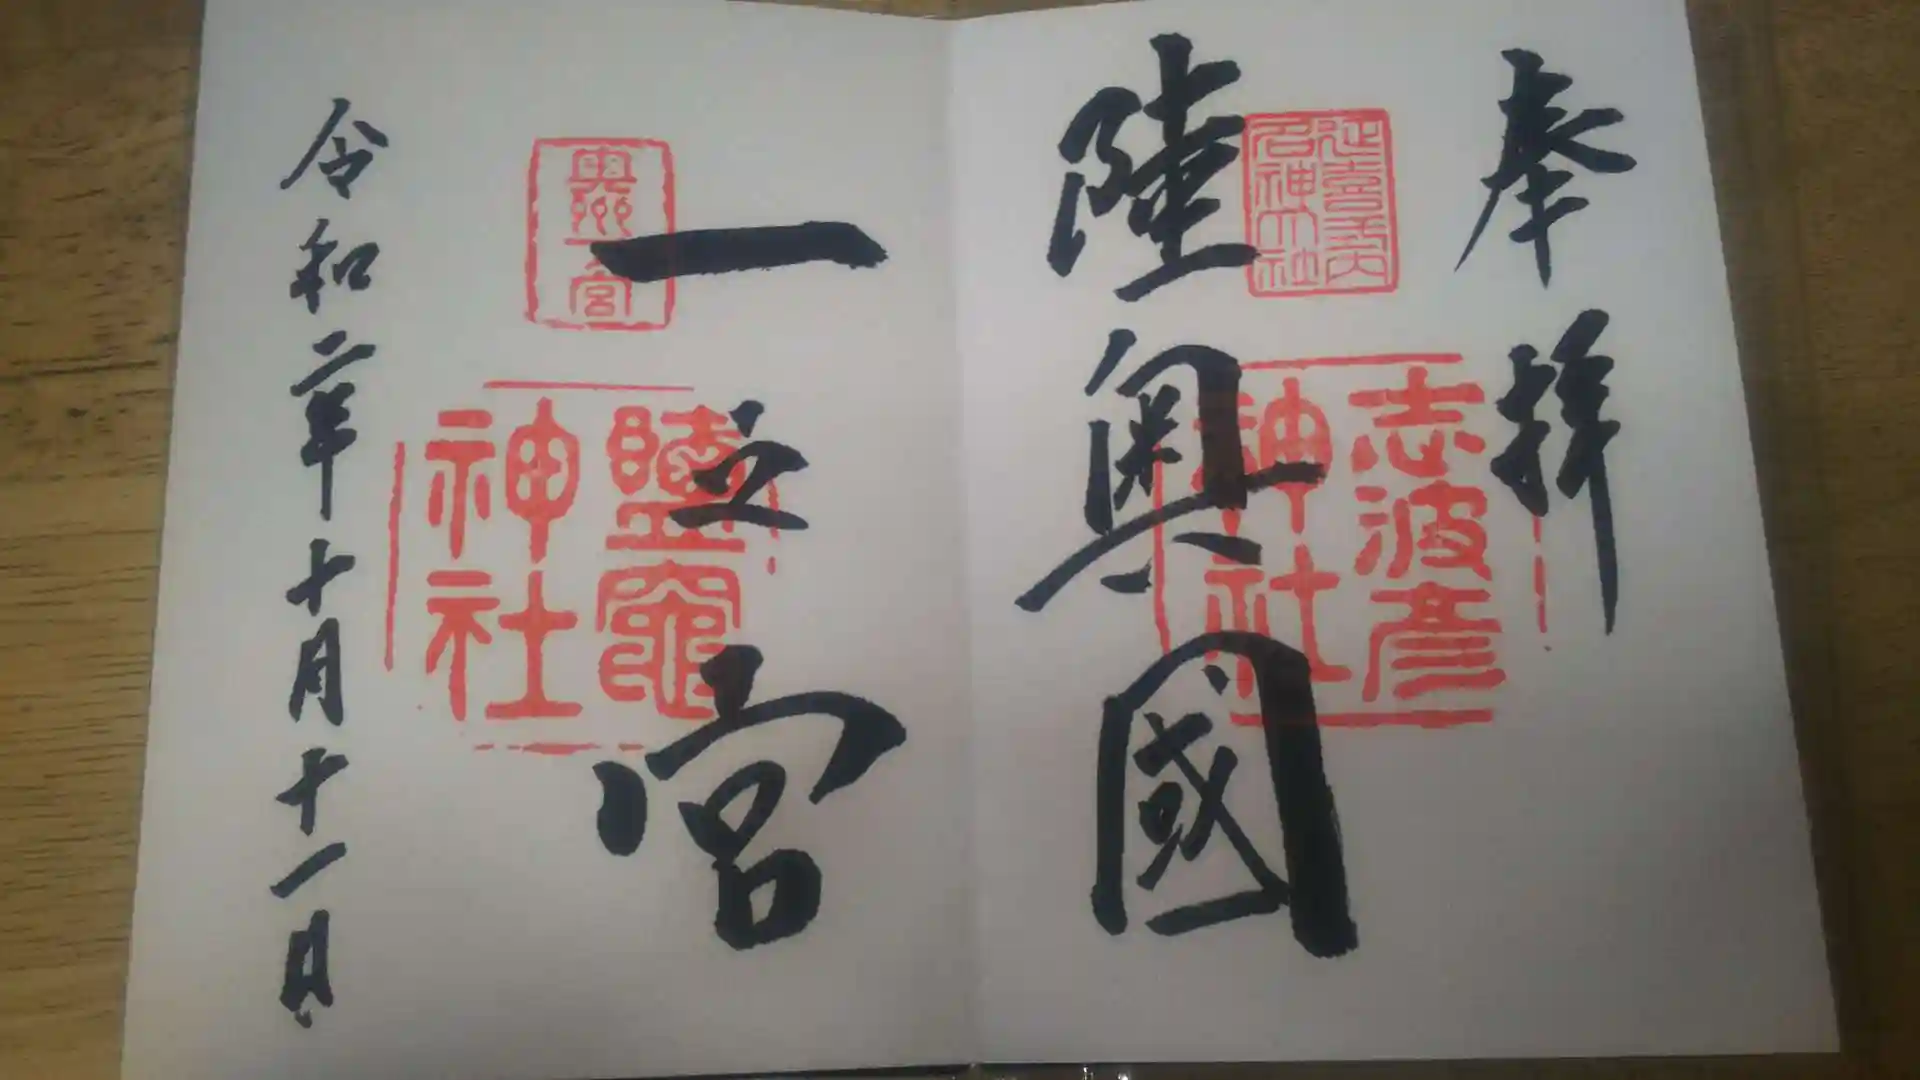 奉拜
延喜式内
名神大社
志波彦
神社
陸奥國
一之宮
奥州
一宮
鹽竈
神社
令和二年十月十一日